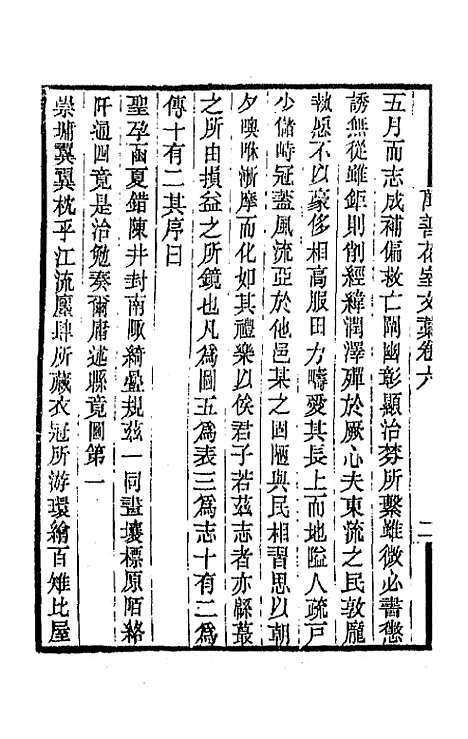 萬善花室文藁卷六
二
五月而志成補偏救亡闡幽彰顯治棼所繫雖微必書懲
誘無從雖鉅則削經緯潤澤殫於厥心夫東流之民敦龐
執愿不以豪侈相高服田力疇愛其長上而地隘人疏戸
少儲峙冠蓋風流亞於他邑某之固陋與民相習思以朝
夕噢咻漸摩而化如其禮樂以俟君子若茲志者亦緜蕞
之所由損益之所鏡也凡爲圖五爲表三爲志十有二爲
傳十有二其序曰
聖孕函夏錯陳井封南畝綺疊規茲一同畫壤標原陌絡
阡通四竟是治勉奏爾庸述縣竟圖第一
崇墉翼翼枕乎江流廛肆所藏衣冠所游環繪百雉比屋